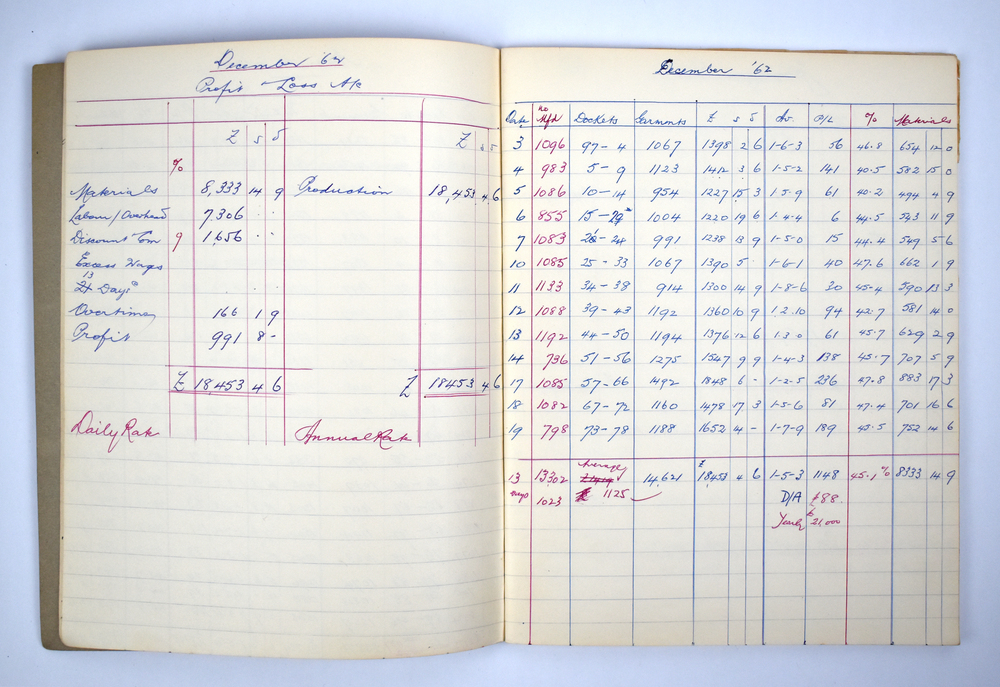 December '62
Profit & Loss A/c
£ s d £ s d
%
Materials 8,333 14 9 Production 18,453 4 6
Labour/Overhead 7306 . .
Discount Com 9 1656 . .
Excess Wages
13
21 Days
Overtime 166 1 9
Profit 991 8 -
£ 18453 4 6 £ 18453 4 6
Daily Rate Annual Rate
December '62
Date no Mfd Dockets Garments £ s d Av. P/L % Materials
3 1096 97-4 1067 1398 2 6 1-6-3 56 46.8 654 12 0
4 983 5-9 1123 1412 3 6 1-5-2 141 40.5 582 15 0
5 1086 10-14 954 1227 15 3 1-5-9 61 40.2 494 4 9
6 855 15-19 1004 1220 19 6 1-4-4 6 44.5 543 11 9
7 1083 20-24 991 1238 13 9 1-5-0 15 44.4 549 5 6
10 1085 25-33 1067 1390 5 . 1-6-1 40 47.6 662 1 9
11 1133 34-38 914 1300 14 9 1-8-6 30 45.4 590 13 3
12 1088 39-43 1192 1360 10 9 1-2-10 94 42.7 581 14 0
13 1192 44-50 1194 1376 12 6 1-3-0 61 45.7 629 2 9
14 736 51-56 1275 1547 9 9 1-4-3 138 45.7 707 5 9
17 1085 57-66 1492 1848 6 - 1-2-5 236 47.8 883 17 3
18 1082 67-72 1160 1478 17 3 1-5-6 81 47.4 701 16 6
19 798 73-78 1188 1652 4 - 1-7-9 189 45.5 752 14 6
Average £
13 13302 14,621 18453 4 6 1-5-3 1148 45.1% 8333 14 9
days 1023 1125 D/A £88.
Yearly £21,000